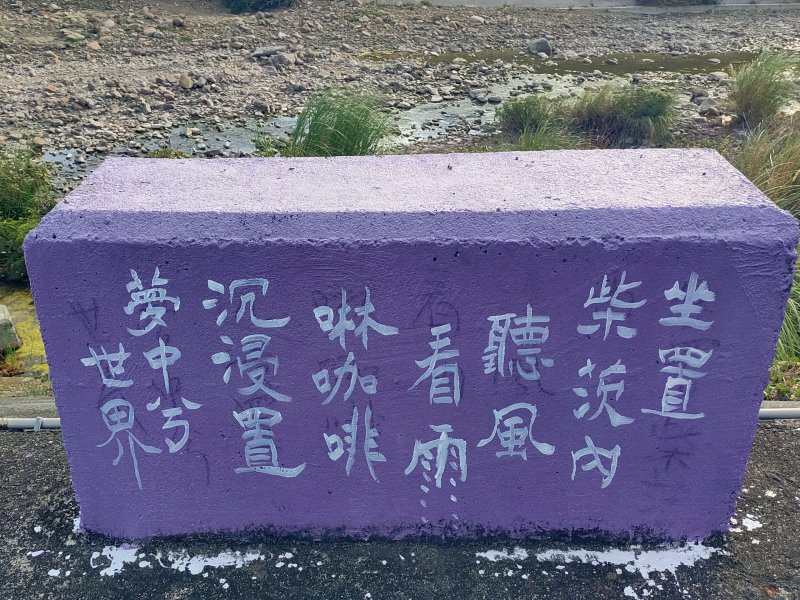 坐置
柴茨內
聽風
看雨……
啉咖啡
沉浸置
夢中兮
世界